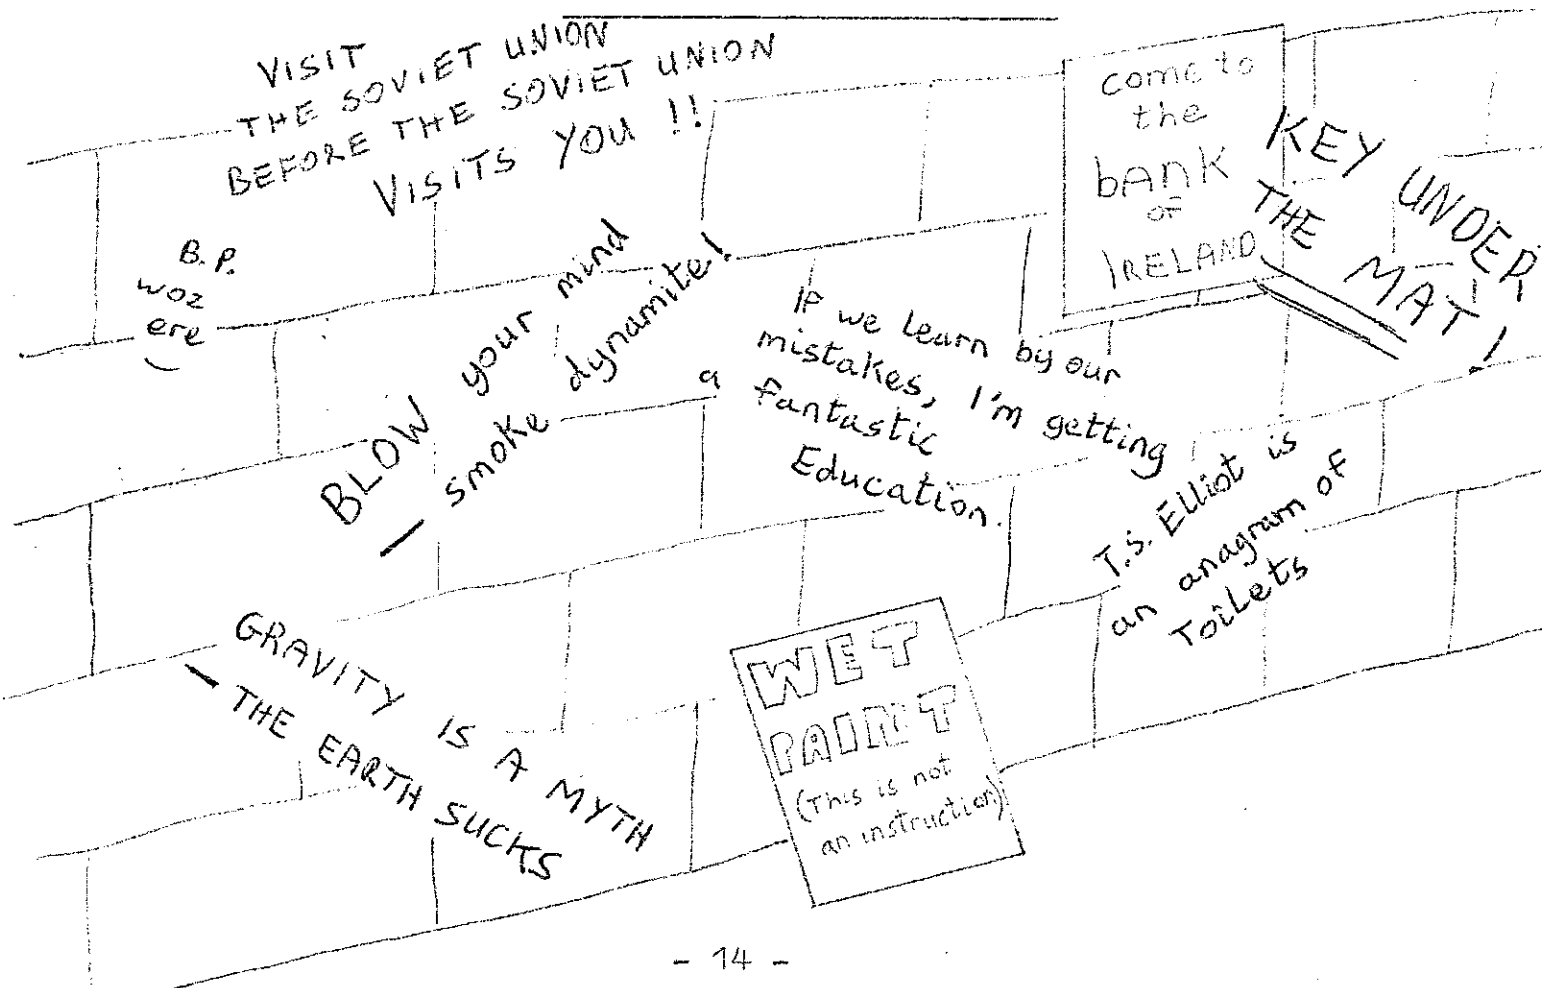 VISIT
THE SOVIET UNION
BEFORE THE SOVIET UNION
VISITS YOU !!
come to
the
bANK
OF
IRELAND
KEY UNDER
THE MAT!
B.P.
woz
ere
BLOW your mind
— smoke dynamite!
If we learn by our
mistakes, I'm getting
a fantastic
Education.
T.S. Elliot is
an anagram of
ToiLets
GRAVITY IS A MYTH
— THE EARTH SUCKS
WET
PAINT
(This is not
an instruction)
- 14 -